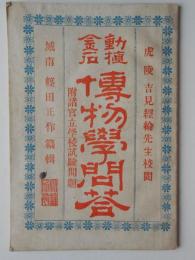 虎陵 吉見經綸先生校閲
動植
金石
博物學問荅
附諸官立學校試驗問題
城南 経田正作編輯